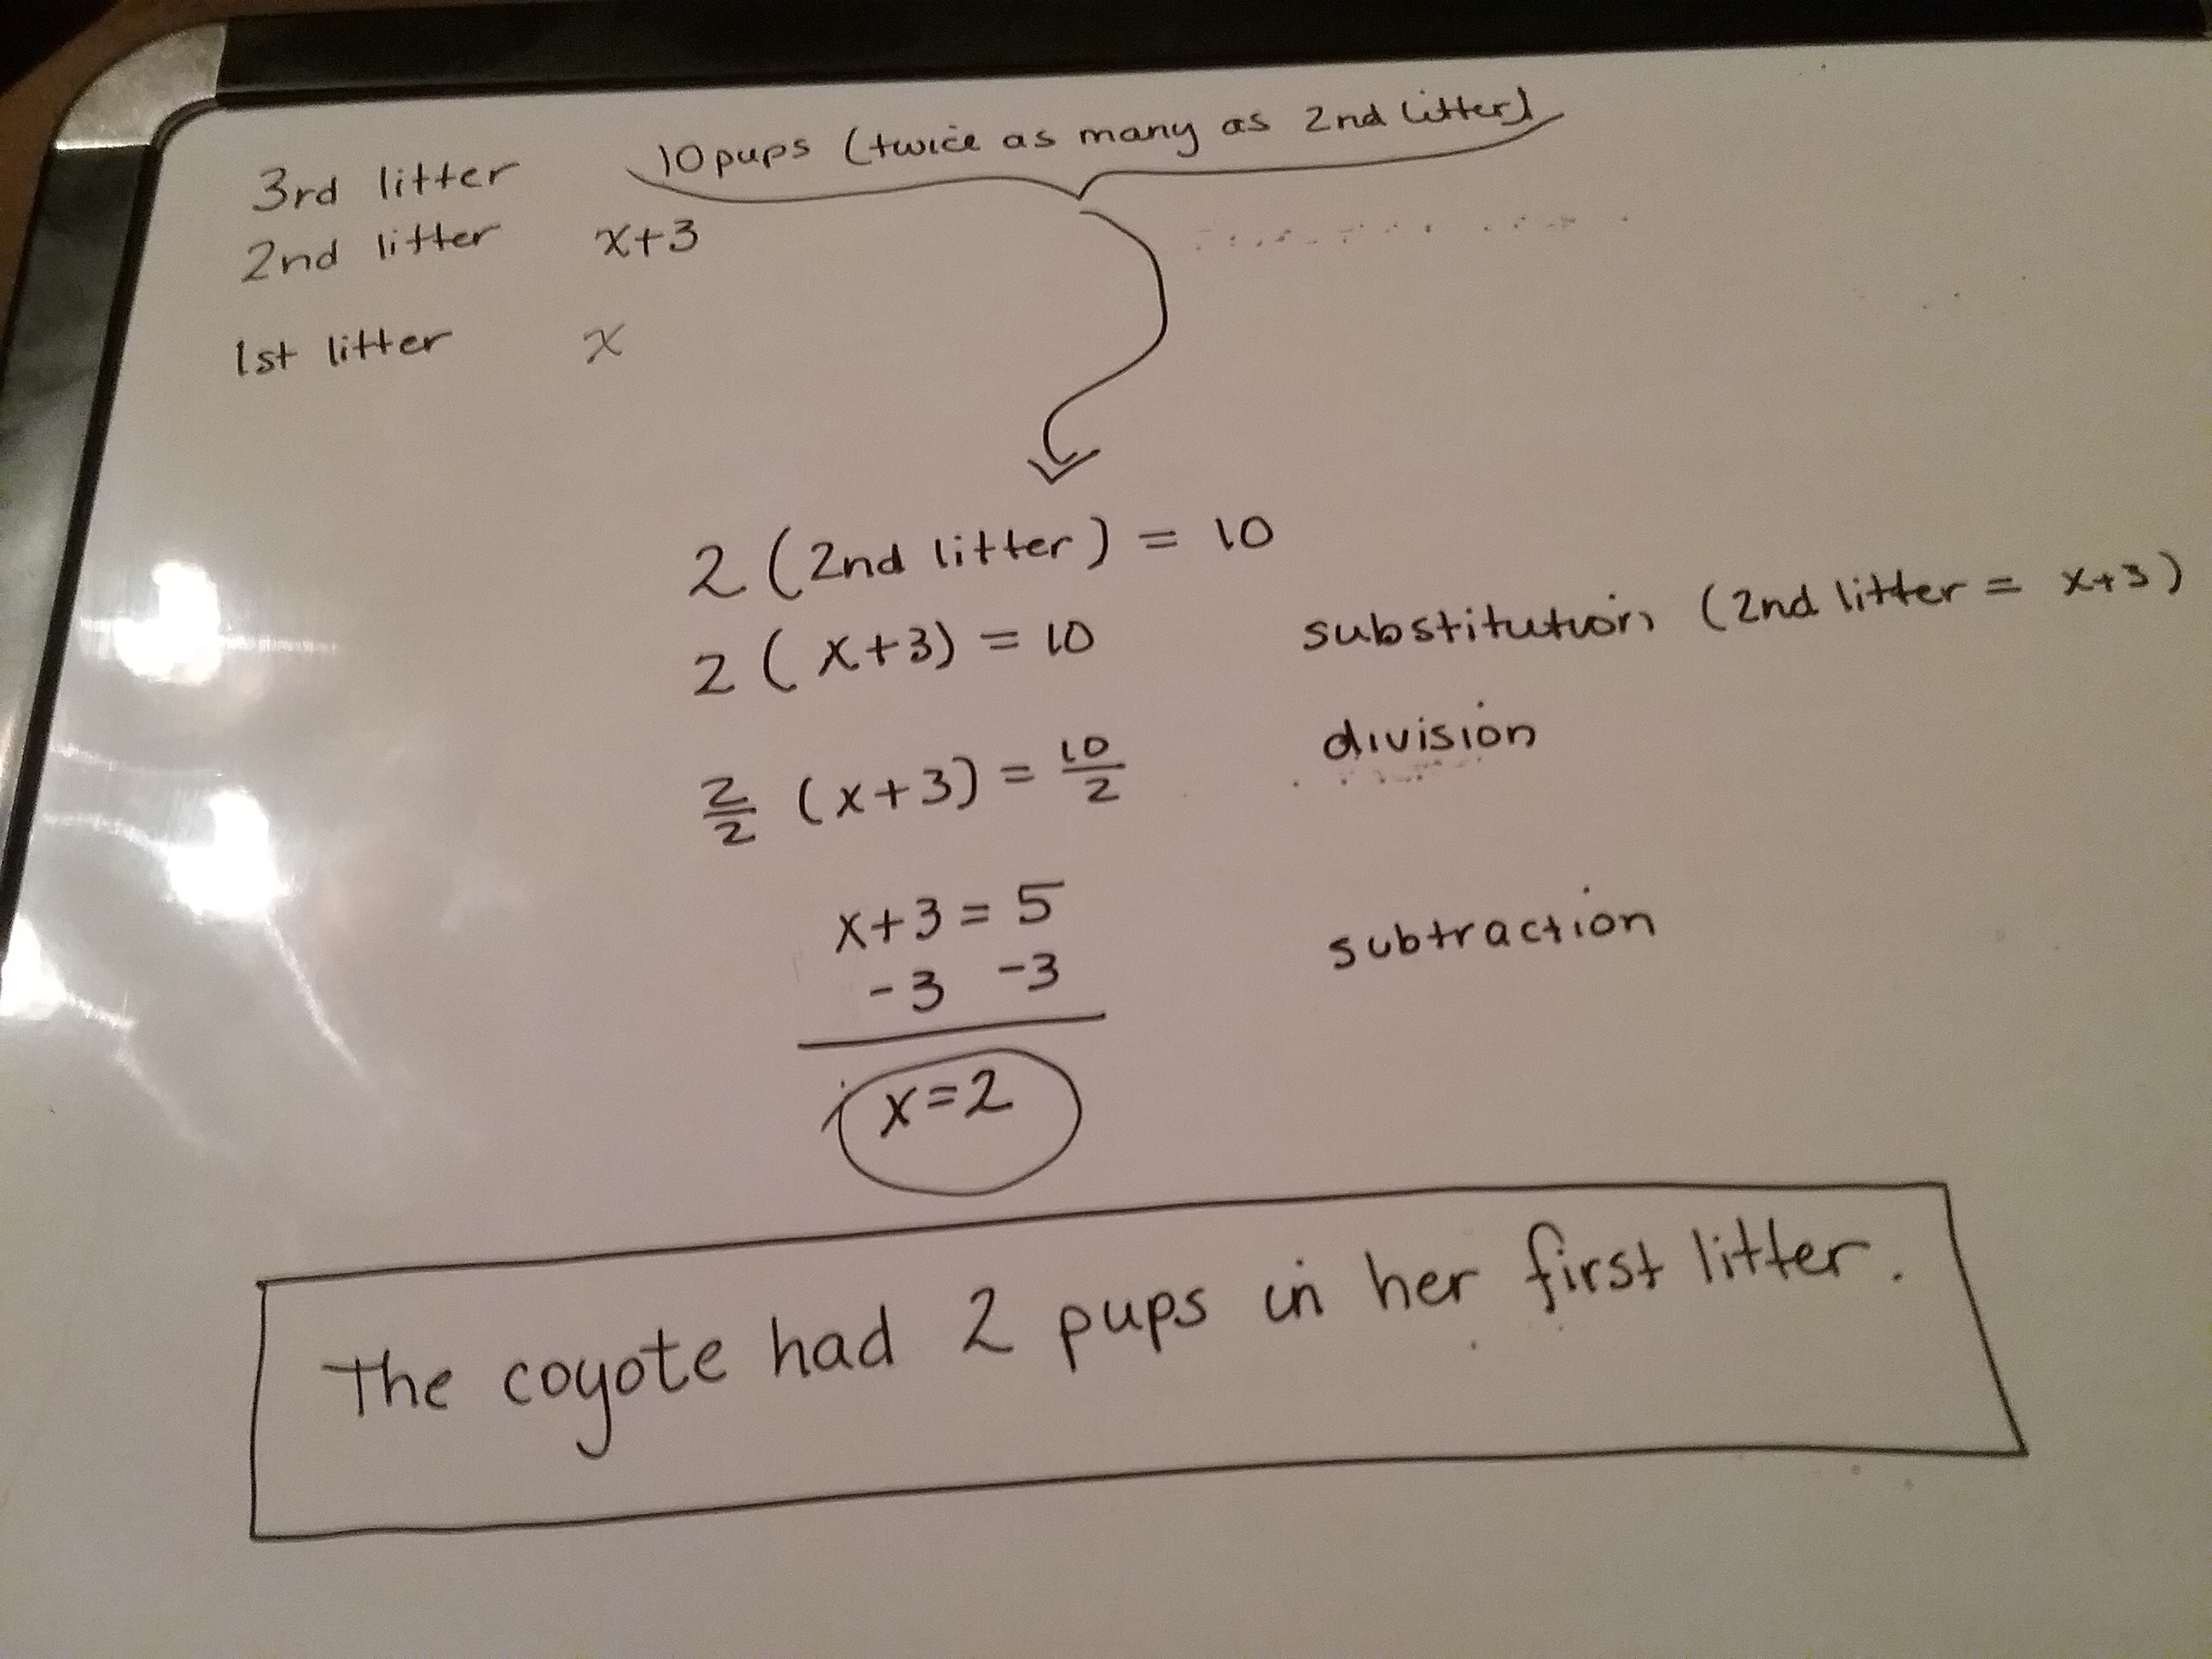 3rd litter 10 pups (twice as many as 2nd litter)
2nd litter x+3
1st litter x
2 (2nd litter) = 10
2 (x+3) = 10 substitution (2nd litter = x+3)
2/2 (x+3) = 10/2 division
x+3 = 5 subtraction
-3 -3
x=2
The coyote had 2 pups in her first litter.